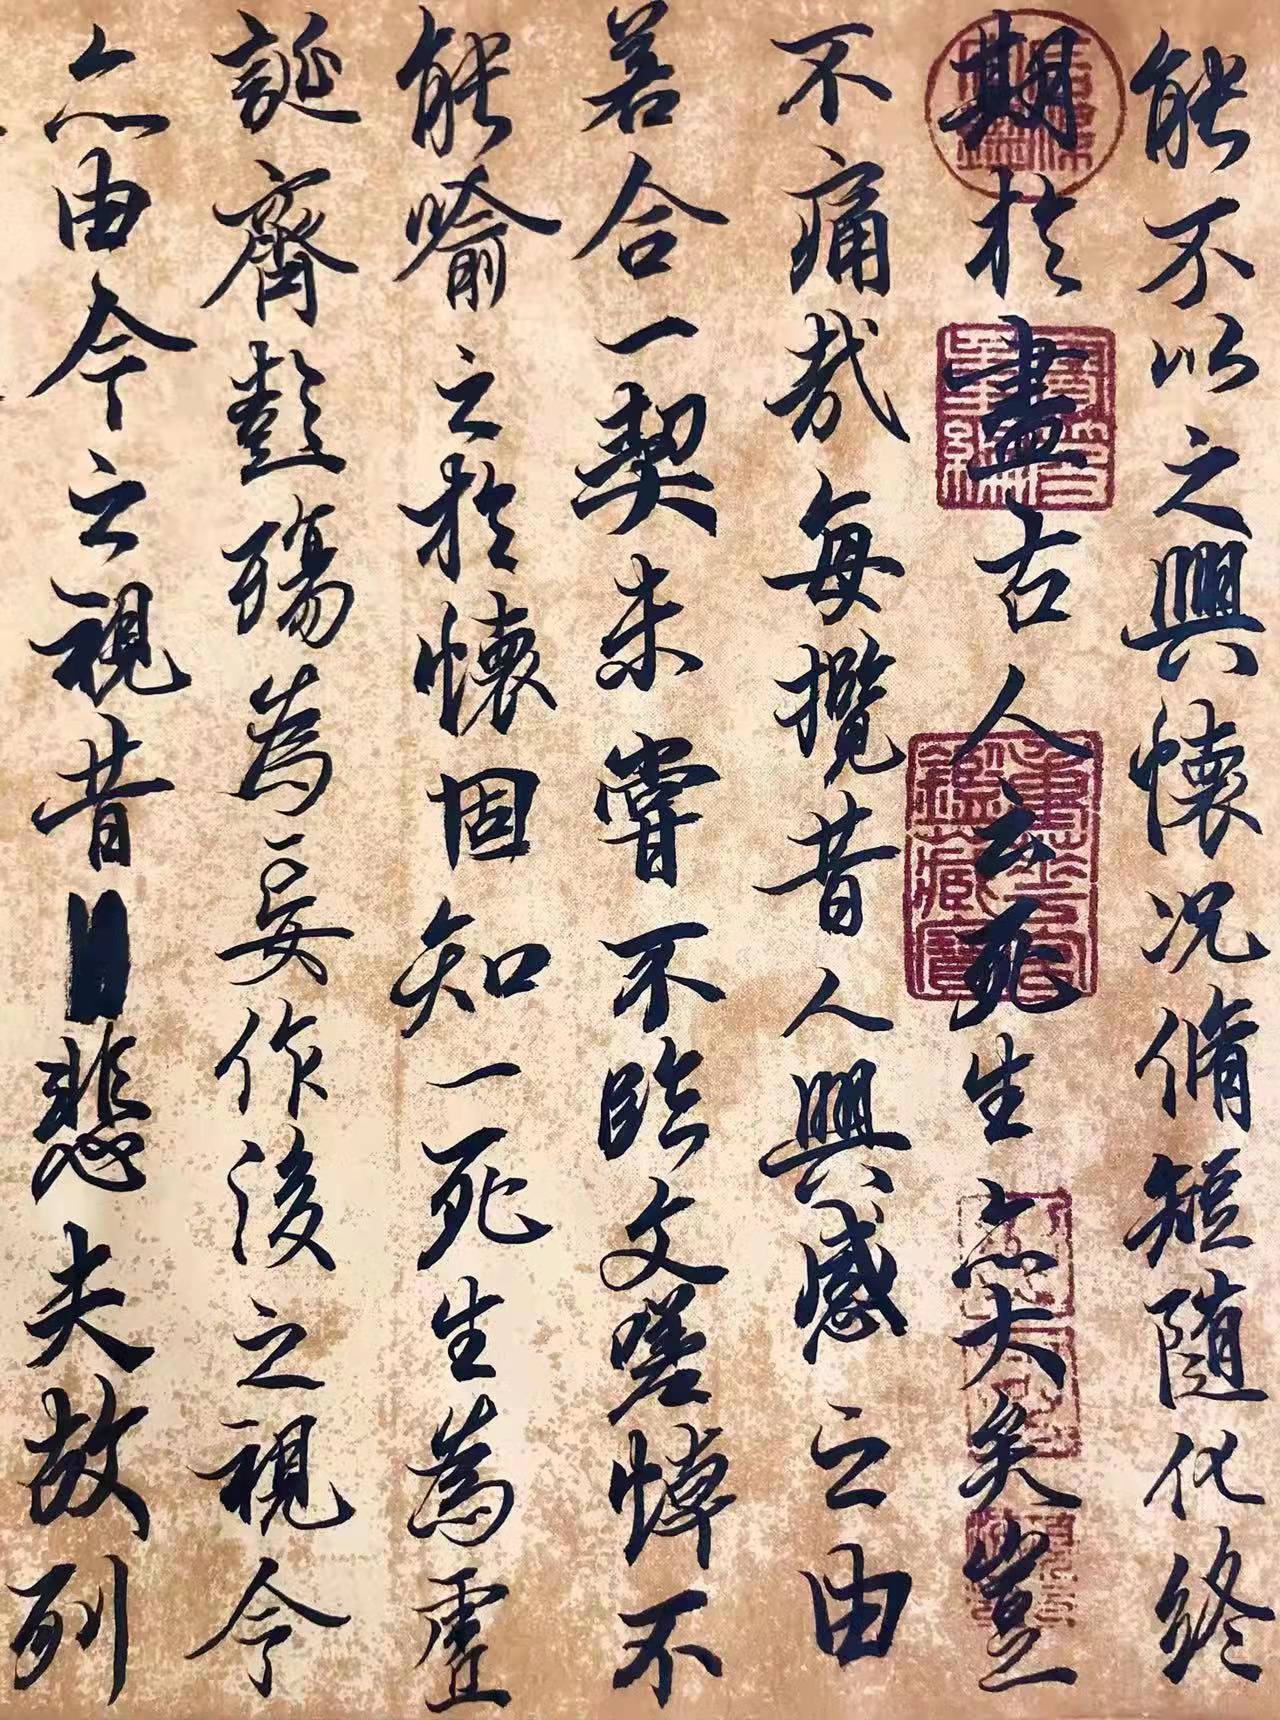 能不以之興懷况脩短隨化終
期於盡古人云死生亦大矣豈
不痛哉每攬昔人興感之由
若合一契未嘗不臨文嗟悼不
能喻之於懷固知一死生為虛
誕齊彭殤為妄作後之視今
亦由今之視昔悲夫故列